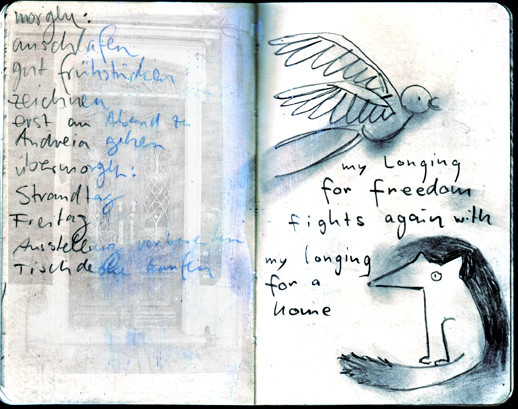 morgen:
ausschlafen
gut frühstücken
zeichnen
erst am Abend zu
Andreia gehen
übermorgen:
Strandtag
Freitag
Ausstellung vorbereiten
Tischdecke kaufen
my longing
for freedom
fights again with
my longing
for a
home